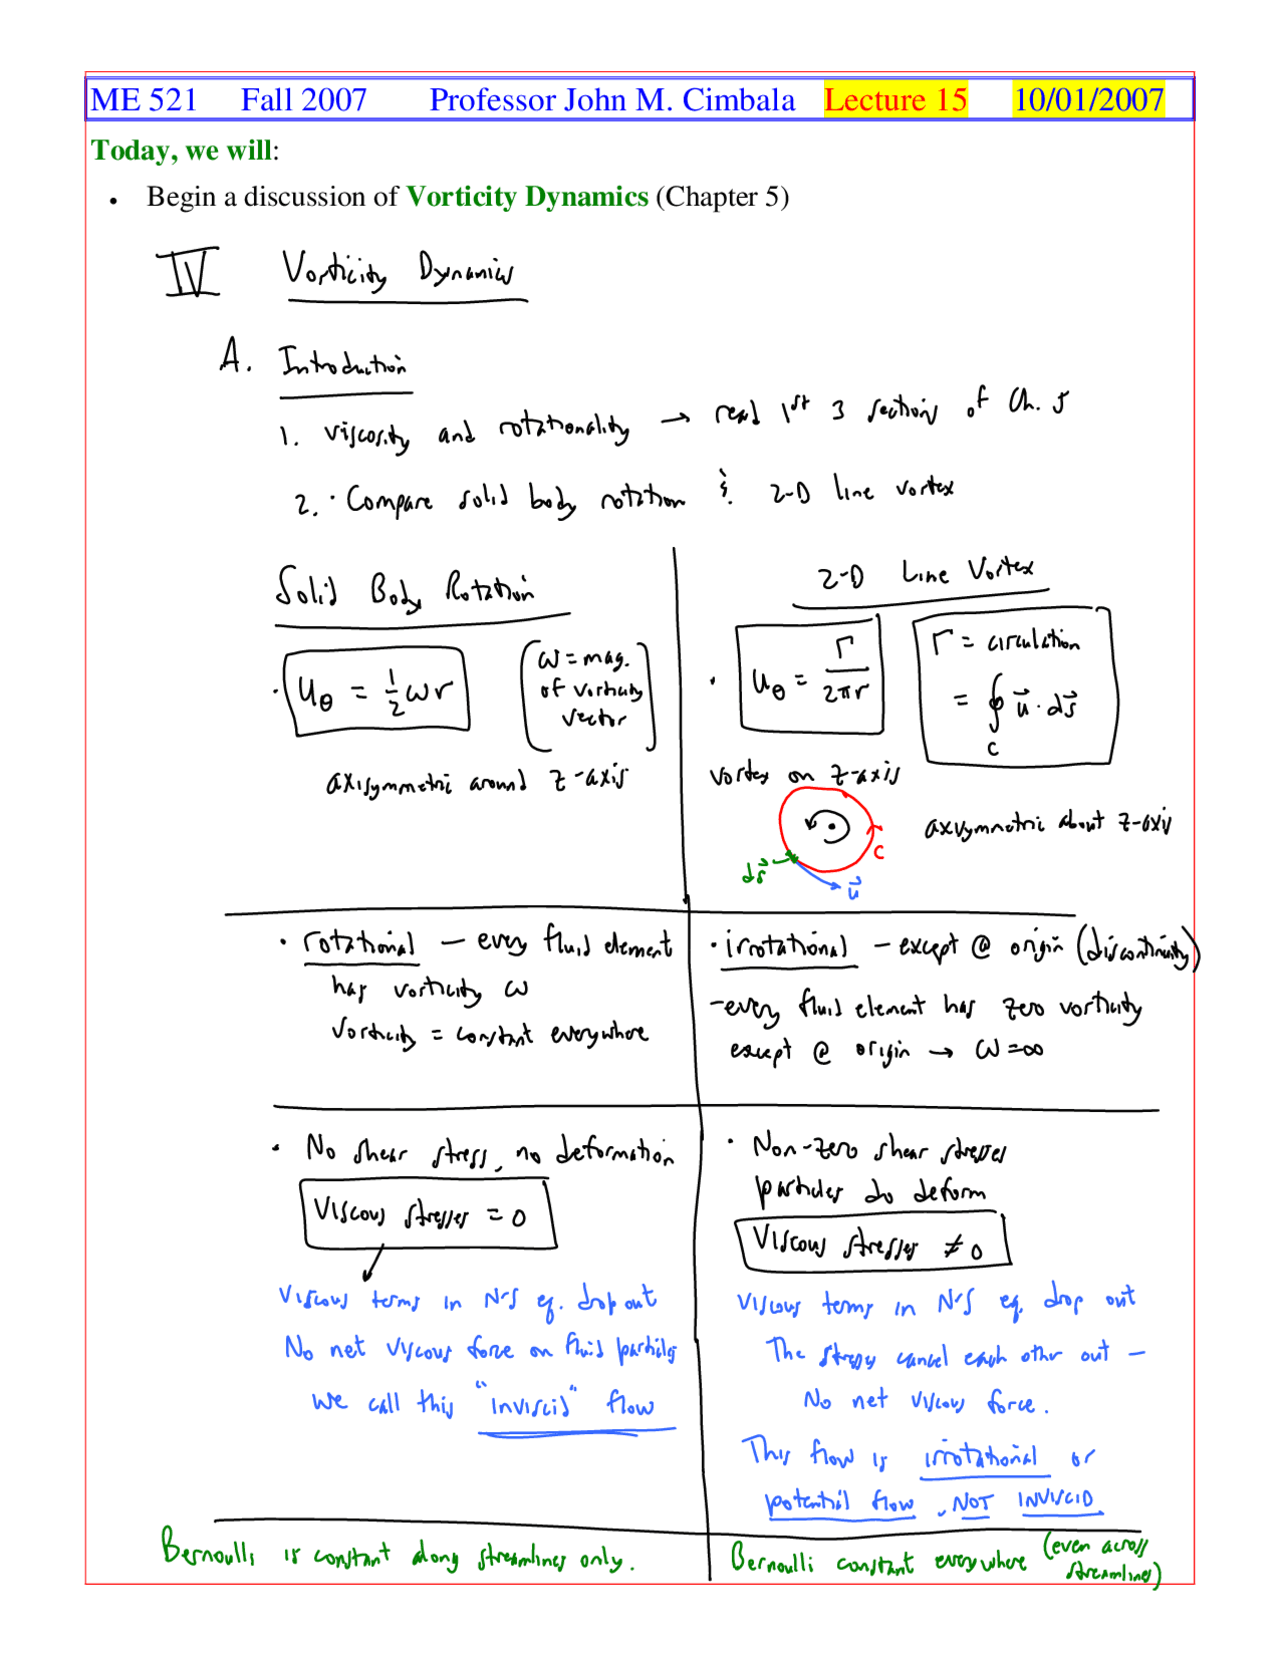 ME 521 Fall 2007 Professor John M. Cimbala Lecture 15 10/01/2007
Today, we will:
• Begin a discussion of Vorticity Dynamics (Chapter 5)
IV Vorticity Dynamics
A. Introduction
1. Viscosity and rotationality → read 1st 3 sections of Ch. 5
2. · Compare solid body rotation & 2-D line vortex
Solid Body Rotation
· u_θ = 1/2 ωr
(ω = mag. of vorticity vector)
axisymmetric around z-axis
2-D Line Vortex
· u_θ = Γ/2πr
Γ = circulation
= ∮_C u⃗ · ds⃗
vortex on z-axis
axisymmetric about z-axis
C
ds⃗
u⃗
· rotational — every fluid element
has vorticity ω
Vorticity = constant everywhere
· irrotational — except @ origin (discontinuity)
- every fluid element has zero vorticity
except @ origin → ω = ∞
· No shear stress, no deformation
Viscous stresses = 0
Viscous terms in N-S eq. drop out
No net viscous force on fluid particles
We call this "inviscid" flow
· Non-zero shear stresses
particles do deform
Viscous stresses ≠ 0
Viscous terms in N-S eq. drop out
The stresses cancel each other out —
No net viscous force.
This flow is irrotational or
potential flow, NOT INVISCID
Bernoulli is constant along streamlines only.
Bernoulli constant everywhere (even across streamlines)